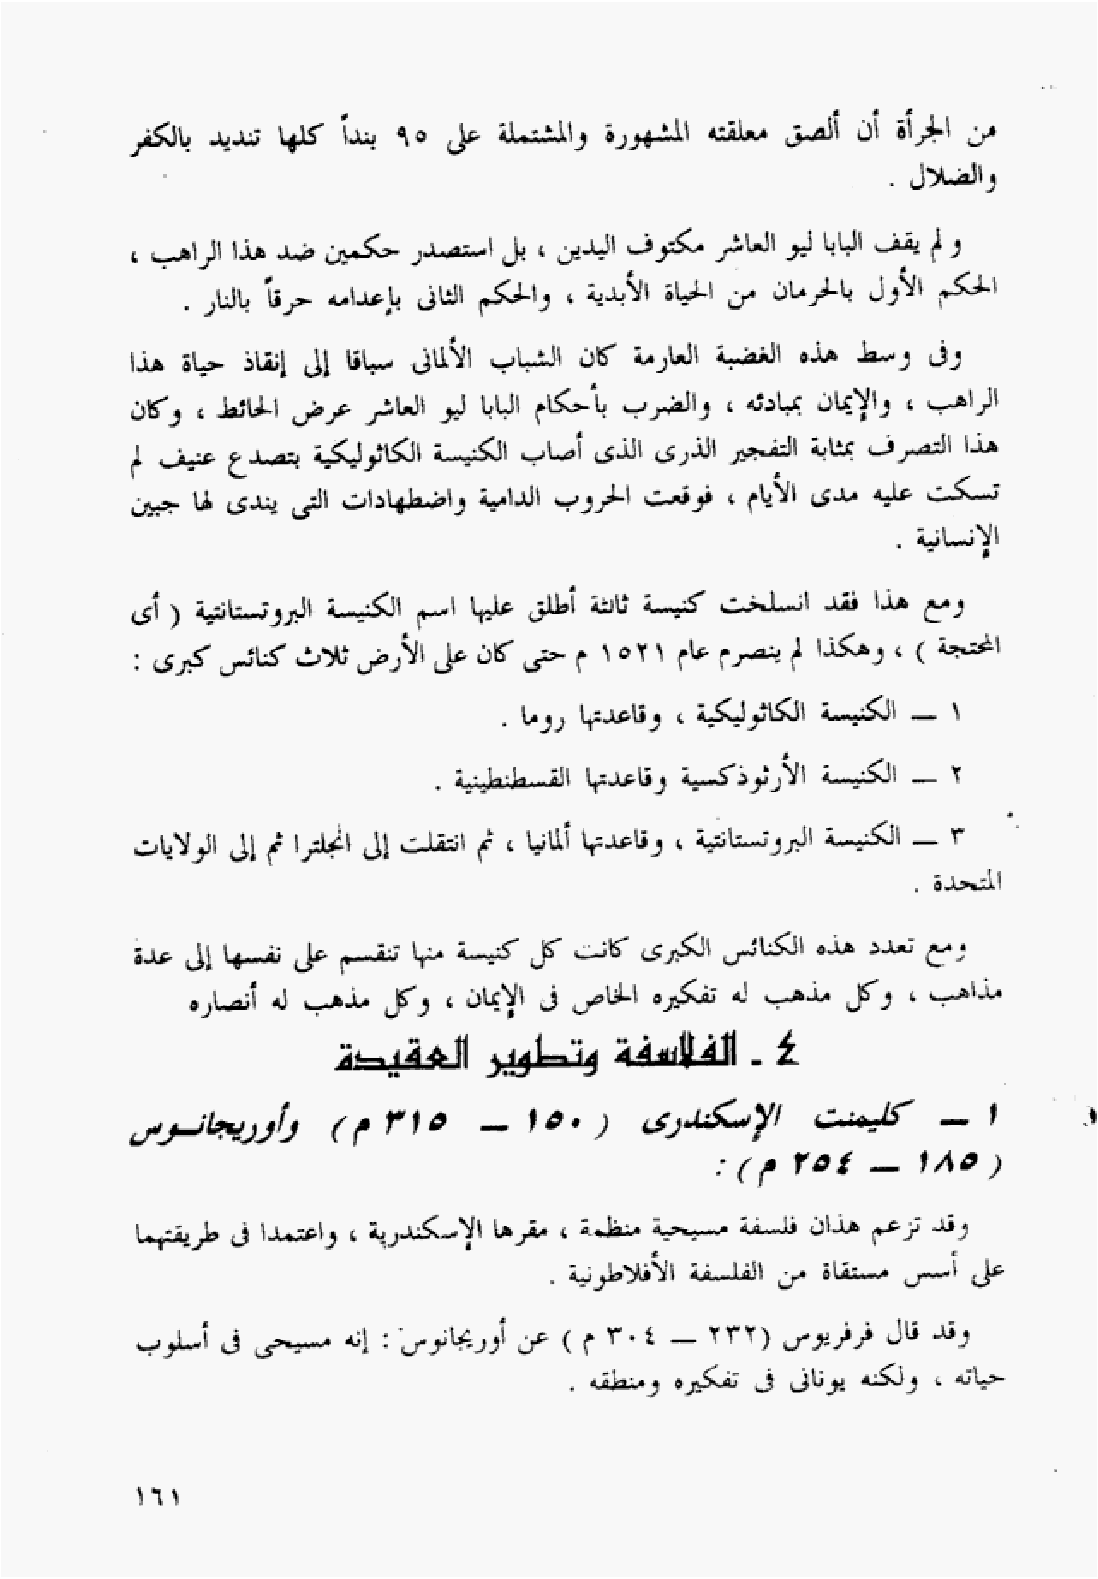 من الجرأة أن ألصق معلقته المشهورة والمشتملة على ٩٥ بنداً كلها تنديد بالكفر
والضلال .
و لم يقف البابا ليو العاشر مكتوف اليدين ، بل استصدر حكمين ضد هذا الراهب ،
الحكم الأول بالحرمان من الحياة الأبدية ، والحكم الثانى بإعدامه حرقاً بالنار .
وفى وسط هذه الغضبة العارمة كان الشباب الألمانى سباقا إلى إنقاذ حياة هذا
الراهب ، والإيمان بمبادئه ، والضرب بأحكام البابا ليو العاشر عرض الحائط ، وكان
هذا التصرف بمثابة التفجير الذرى الذى أصاب الكنيسة الكاثوليكية بتصدع عنيف لم
تسكت عليه مدى الأيام ، فوقعت الحروب الدامية واضطهادات التى يندى لها جبين
الإنسانية .
ومع هذا فقد انسلخت كنيسة ثالثة أطلق عليها اسم الكنيسة البروتستانتية ( أى
المحتجة ) ، وهكذا لم ينصرم عام ١٥٢١ م حتى كان على الأرض ثلاث كنائس كبرى :
١ — الكنيسة الكاثوليكية ، وقاعدتها روما .
٢ — الكنيسة الأرثوذكسية وقاعدتها القسطنطينية .
٣ — الكنيسة البروتستانتية ، وقاعدتها ألمانيا ، ثم انتقلت إلى انجلترا ثم إلى الولايات
المتحدة .
ومع تعدد هذه الكنائس الكبرى كانت كل كنيسة منها تنقسم على نفسها إلى عدة
مذاهب ، وكل مذهب له تفكيره الخاص فى الإيمان ، وكل مذهب له أنصاره
٤ - الفلاسفة وتطوير العقيدة
١ — كليمنت الإسكندرى ( ١٥٠ — ٣١٥ م ) وأوريجانوس
( ١٨٥ — ٢٥٤ م ) :
وقد تزعم هذان فلسفة مسيحية منظمة ، مقرها الإسكندرية ، واعتمدا فى طريقتهما
على أسس مستقاة من الفلسفة الأفلاطونية .
وقد قال فرفريوس (٢٣٢ — ٣٠٤ م ) عن أوريجانوس : إنه مسيحى فى أسلوب
حياته ، ولكنه يونانى فى تفكيره ومنطقه .
١٦١